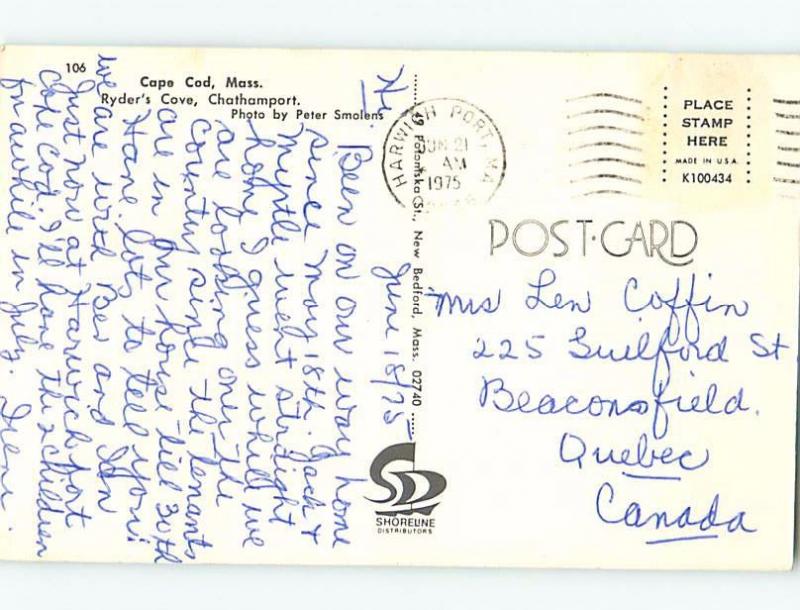 106
Cape Cod, Mass.
Ryder's Cove, Chathamport.
Photo by Peter Smolens
June 18/75
Hi.
Been on our way home
since May 18th. Jack &
Myrtle went straight
home I guess while we
are looking over the
country since - the tenants
are in our house till 30th
Have lots to tell you!
we are with Bev and Don
Just now at Harwichport
Cape Cod. I'll have the 2 children
for awhile in July. Irene.
49 Potomska St., New Bedford, Mass. 02740
SHORELINE
DISTRIBUTORS
HARWICH PORT, MA
JUN 21
AM
1975
PLACE
STAMP
HERE
MADE IN U.S.A.
K100434
POST-CARD
Mrs Len Coffin
225 Guilford St
Beaconsfield.
Quebec
Canada